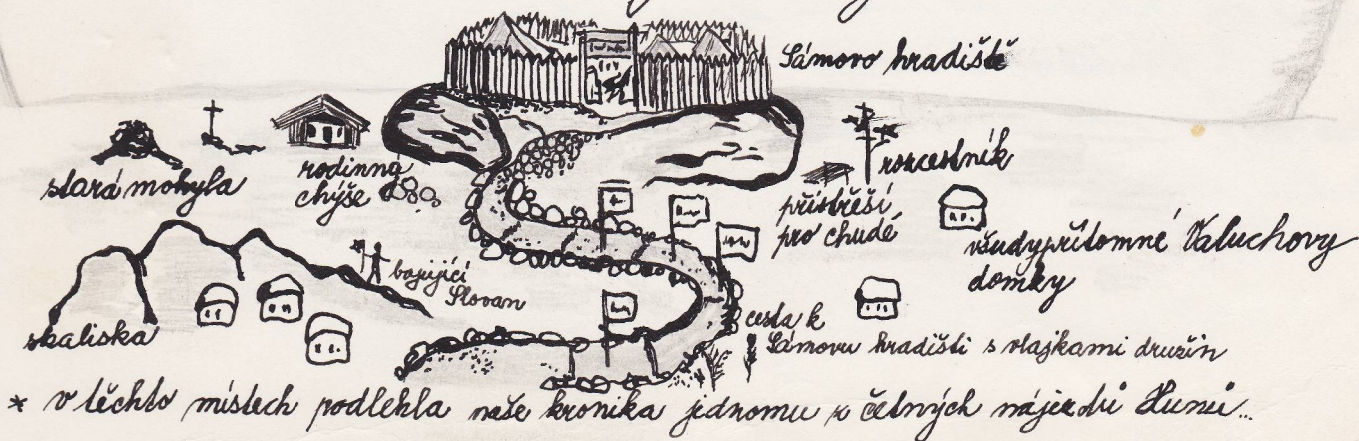 Sámovo hradiště
stará mohyla
rodinná
chýše
rozcestník
přístřeší
pro chudé
všudypřítomné Valuchovy
domky
bojující
Slovan
skaliska
cesta k
Sámovu hradišti s vlajkami družin
* v těchto místech podlehla naše kronika jednomu z četných nájezdů Hunů...